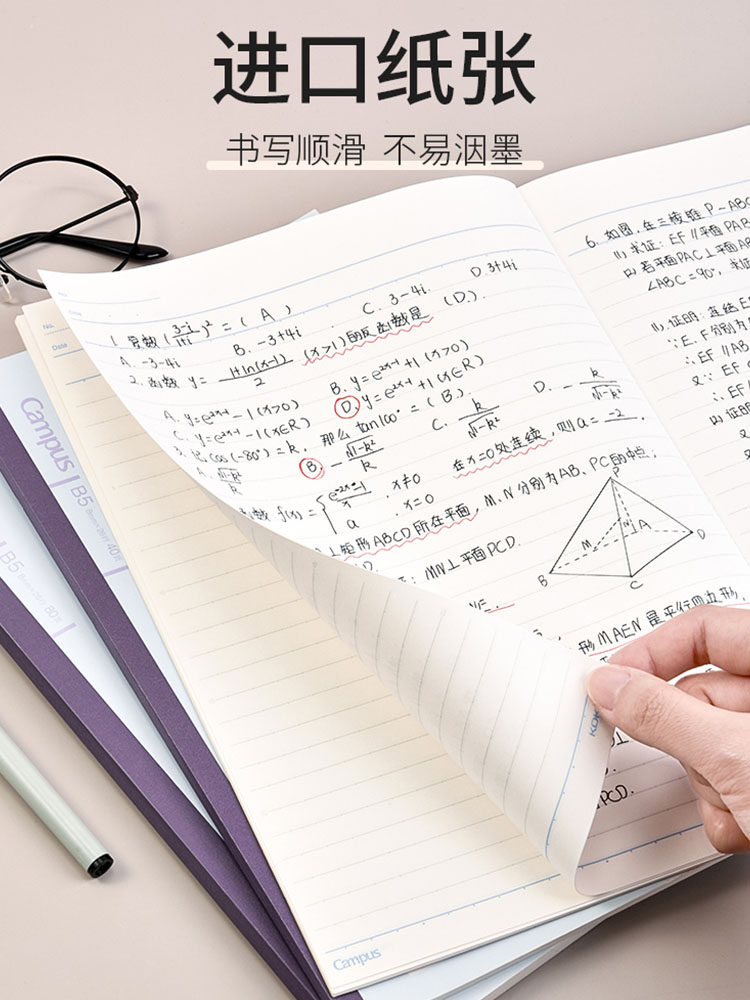 进口纸张
书写顺滑 不易洇墨
No.
Date
1. 复数(3-i/1+i)² = ( A )
A. -3-4i B. -3+4i C. 3-4i D. 3+4i
2. 函数 y = 1+ln(x-1)/2 (x>1)的反函数是 (D).
A. y=e²ˣ⁻¹-1(x>0) B. y=e²ˣ⁻¹+1(x>0)
C. y=e²ˣ⁻¹-1(x∈R) D. y=e²ˣ⁻¹+1(x∈R)
3. 记cos(-80°)=k, 那么tan100°=(B)
A. √1-k²/k B. -√1-k²/k C. k/√1-k² D. -k/√1-k²
函数 f(x)={ , x≠0
a , x=0
在x=0处连续, 则a= -2 .
矩形ABCD所在平面, M、N分别为AB、PC的中点;
MN⊥平面PCD.
P
N
A
M
D
B
C
形MAEN是平行四边形,
PCD.
6. 如图,在三棱锥P-ABC
(1) 求证: EF∥平面PAB
(2) 若平面PAC⊥平面AB
∠ABC=90°, 求证
(1) 证明: 连结E
∵E、F分别为
∴EF∥AB
又∵EF
∴EF∥
(2) 证明
又
Campus
B5
40
B5
80
KOK
Campus